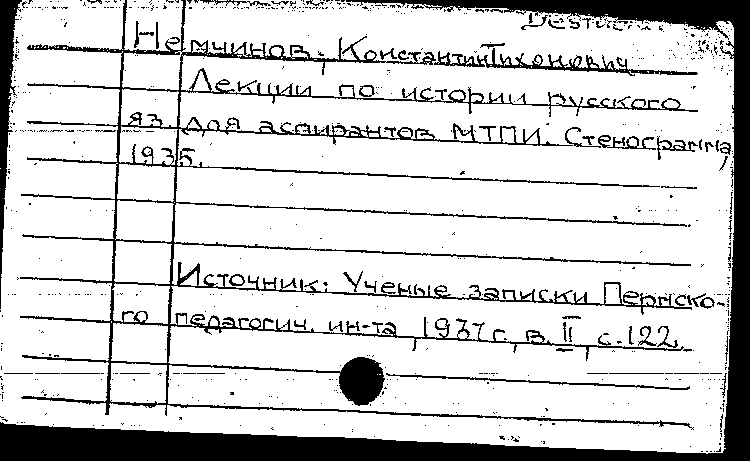 Немчинов, Константин Тихонович
Лекции по истории русского
яз. для аспирантов МТПИ. Стенограмма,
1935.
Источник: Ученые записки Пермско-
го педагогич. ин-та, 1937 г., в. II, с. 122.